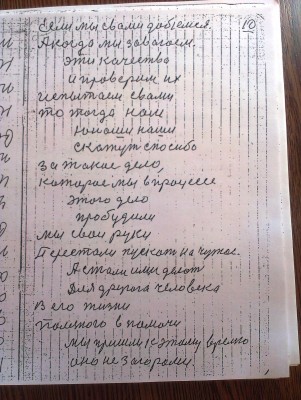 10
Если мы с вами добьемся.
А когда мы завагаем.
эти качества
и проверим их
испытаем с вами
то тогда нам
юноши наши
скажут спосибо
За такое дело,
которае мы в процессе
этого дело
пробудили
мы свои руки
Перестали пускат на чужое.
А стали ими
для другога человека
В его жизни
в помочи
мы пришли к этаму время
оно не загорами